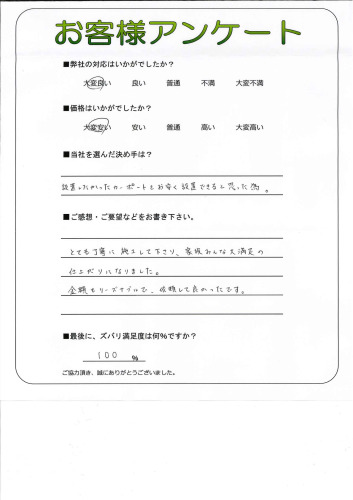 お客様アンケート
■弊社の対応はいかがでしたか？
大変良い 良い 普通 不満 大変不満
■価格はいかがでしたか？
大変安い 安い 普通 高い 大変高い
■当社を選んだ決め手は？
設置したかったカーポートをお安く設置できると思った為。
■ご感想・ご要望などをお書き下さい。
とても丁寧に施工して下さり、家族みんな大満足の
仕上がりになりました。
金額もリーズナブルで、依頼して良かったです。
■最後に、ズバリ満足度は何％ですか？
100 ％
ご協力頂き、誠にありがとうございました。